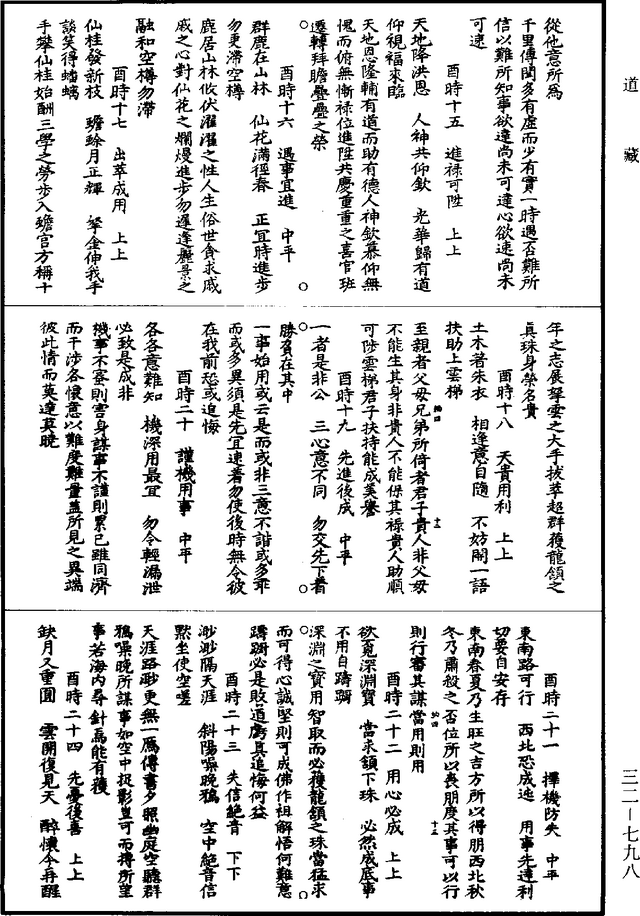 道藏
從他意所為
千里傳聞多有虛而少有實一時遇否難所
信以難所知事欲達尚未可達心欲速尚未
可速
酉時十五　進祿可陞　上上
天地降洪恩　人神共仰欽　光華歸有道
仰視福來臨
天地恩隆輔有道而助有德人神欽慕仰無
愧而俯無慚祿位進陞共慶重重之喜官班
遷轉拜瞻疊疊之榮
酉時十六　遇事宜進　中平
群鹿在山林　仙花滿徑春　正宜時進步
勿更滯空樽
鹿居山林攸伏濯濯之性人生俗世貪求戚
戚之心對仙花之爛熳進步勿遲逢麗景之
融和空樽勿滯
酉時十七　出萃成用　上上
仙桂發新枝　蟾蜍月正輝　拏金伸我手
談笑得蟠螭
手攀仙桂始酬三學之勞步入蟾宮方稱十
年之志展拏雲之大手拔萃超群獲龍頷之
真珠身榮名貴
酉時十八　天貴用利　上上
土木著朱衣　相逢意自隨　不妨閑一語
扶助上雲梯
至親者父母兄弟所倚者君子貴人非父母
不能生其身非貴人不能保其祿貴人助順
可陟雲梯君子扶持能成美譽
酉時十九　先進後成　中平
一者是非公　三心意不同　勿交先下著
勝負在其中
一事始用或云是而或非三意不詳或多乖
而或多異須是先宜速著勿使後時無令彼
在我前恐或追悔
酉時二十　謹機用事　中平
各各意難知　機深用最宜　勿令輕漏泄
必致是成非
機事不密則害身謀事不謹則累己雖同濟
而干涉各懷意以難度難量蓋所見之異端
彼此情而莫達莫曉
酉時二十一　擇機防失　中平
東南路可行　西北恐成迍　用事先達利
切要自安存
東南春夏乃生旺之吉方所以得朋西北秋
冬乃肅殺之否位所以喪朋度其事可以行
則行審其謀當用則用
酉時二十二　用心必成　上上
欲覓深淵寶　當求頷下珠　必然成底事
不用自躊躕
深淵之寶用智取而必獲龍頷之珠當猛求
而可得心誠堅則可成佛作祖解悟何難意
躊躕必是敗道虧真追悔何益
酉時二十三　失信絕音　下下
渺渺隔天涯　斜陽噪晚鴉　空中絕音信
默坐使空嗟
天涯路渺更無一鴈傳書夕照幽庭空聽群
鴉噪晚所謀事如空中捉影豈可而摶所望
事若海內尋針焉能有獲
酉時二十四　先憂後喜　上上
缺月又重圓　雲開復見天　醉懷今再醒
三二—七九八